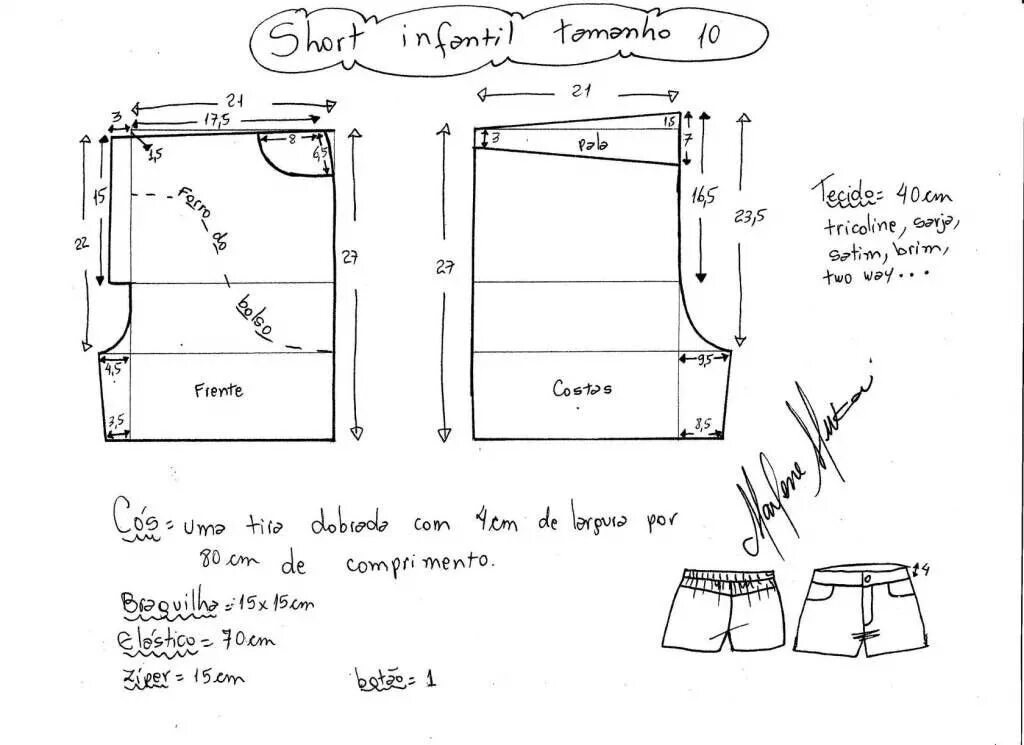 Short infantil tamanho 10
21
17,5
3
1,5
8
6,5
15
22
27
Forro
de
bolso
4,5
3,5
Frente
21
1,5
3
Pala
7
16,5
23,5
27
9,5
8,5
Costas
Tecido = 40cm
tricoline, sarja,
satim, brim,
two way...
Cós = uma tira dobrada com 4cm de largura por
80cm de comprimento.
Braguilha = 15x15cm
Elástico = 70cm
Zíper = 15cm
botão = 1
Marlene
4